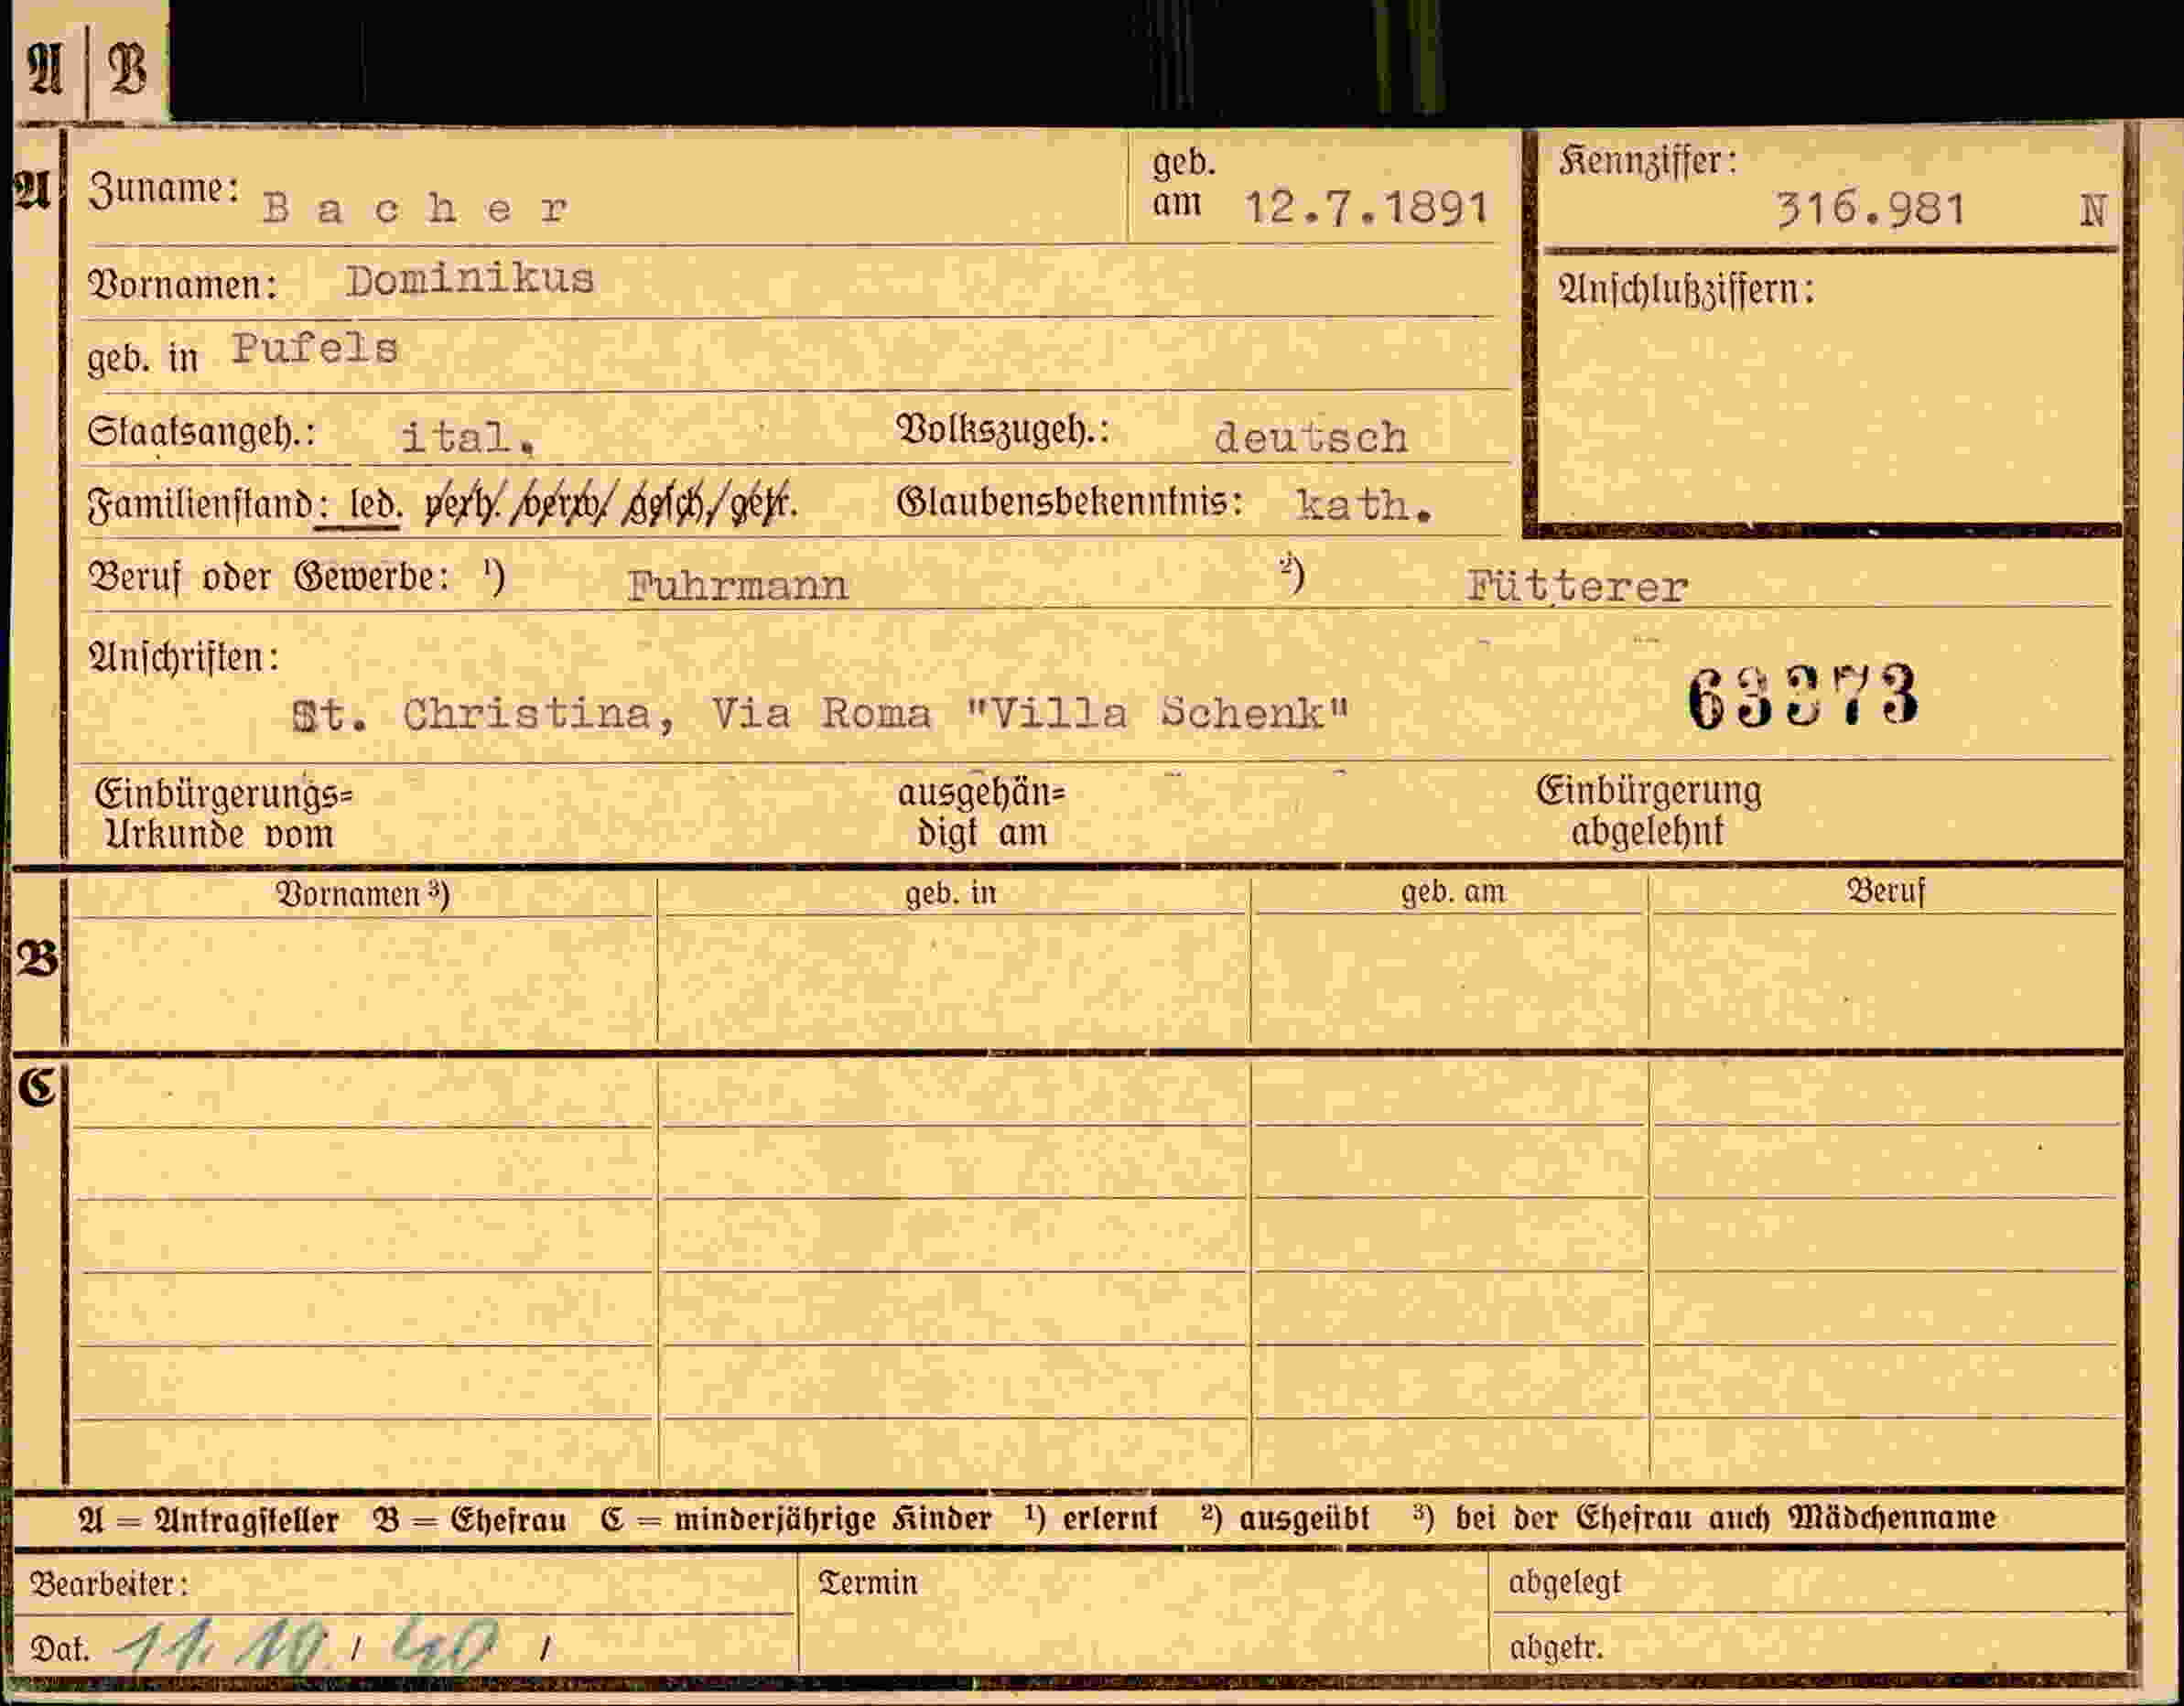 A | B
A
Zuname: Bacher geb. am 12.7.1891 Kennziffer: 316.981 N
Vornamen: Dominikus Anschlußziffern:
geb. in Pufels
Staatsangeh.: ital. Volkszugeh.: deutsch
Familienstand: led. verh./verw./gesch./getr. Glaubensbekenntnis: kath.
Beruf oder Gewerbe: ¹) Fuhrmann ²) Fütterer
Anschriften:
St. Christina, Via Roma "Villa Schenk" 63373
Einbürgerungs= ausgehän= Einbürgerung
Urkunde vom digt am abgelehnt
Vornamen ³) geb. in geb. am Beruf
B
C
A = Antragsteller B = Ehefrau C = minderjährige Kinder ¹) erlernt ²) ausgeübt ³) bei der Ehefrau auch Mädchenname
Bearbeiter: Termin abgelegt
Dat. 11. 10. / 40 / abgetr.